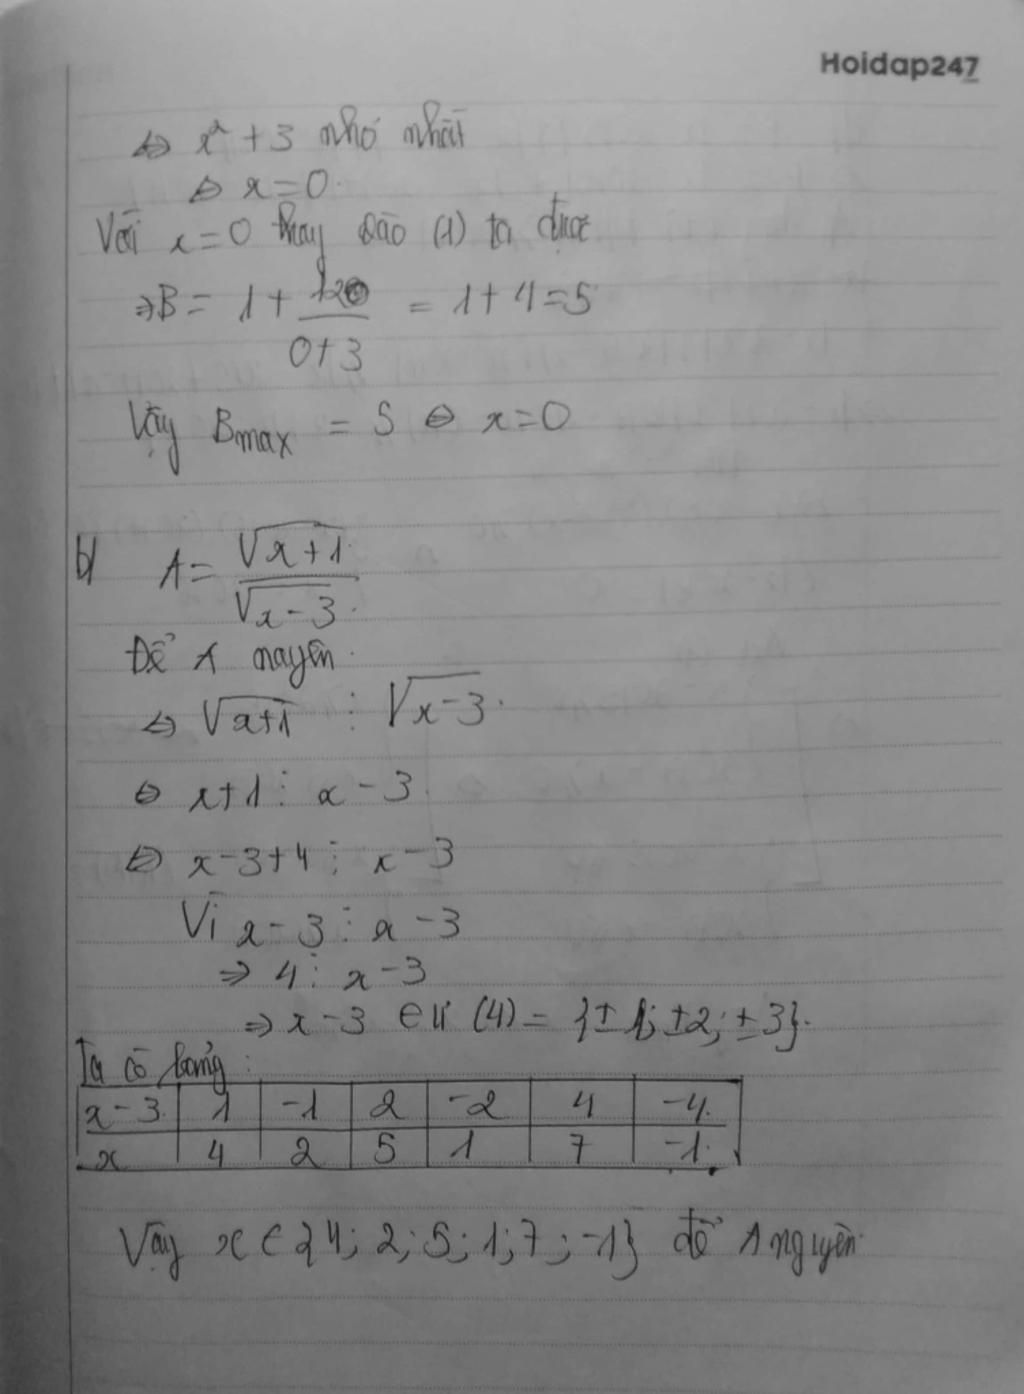 Hoidap247
⇔ x² + 3 nhỏ nhất
⇔ x = 0.
Với x = 0 thay vào (1) ta được
⇒ B = 1 + 12/(0+3) = 1 + 4 = 5
Vậy Bmax = 5 ⇔ x = 0
b) A = √(x+1) / √(x-3).
Để A nguyên.
⇔ √(x+1) ⋮ √(x-3).
⇔ x+1 ⋮ x-3.
⇔ x-3+4 ⋮ x-3
Vì x-3 ⋮ x-3
⇒ 4 ⋮ x-3
⇒ x-3 ∈ Ư (4) = {±1; ±2; ±3}.
Ta có bảng:
x-3 | 1 | -1 | 2 | -2 | 4 | -4.
x | 4 | 2 | 5 | 1 | 7 | -1.
Vậy x ∈ {4; 2; 5; 1; 7; -1} để A nguyên.